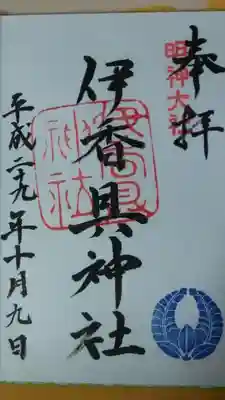 奉拝
明神大社
伊香具神社
伊香具
神社
平成二十九年十月九日